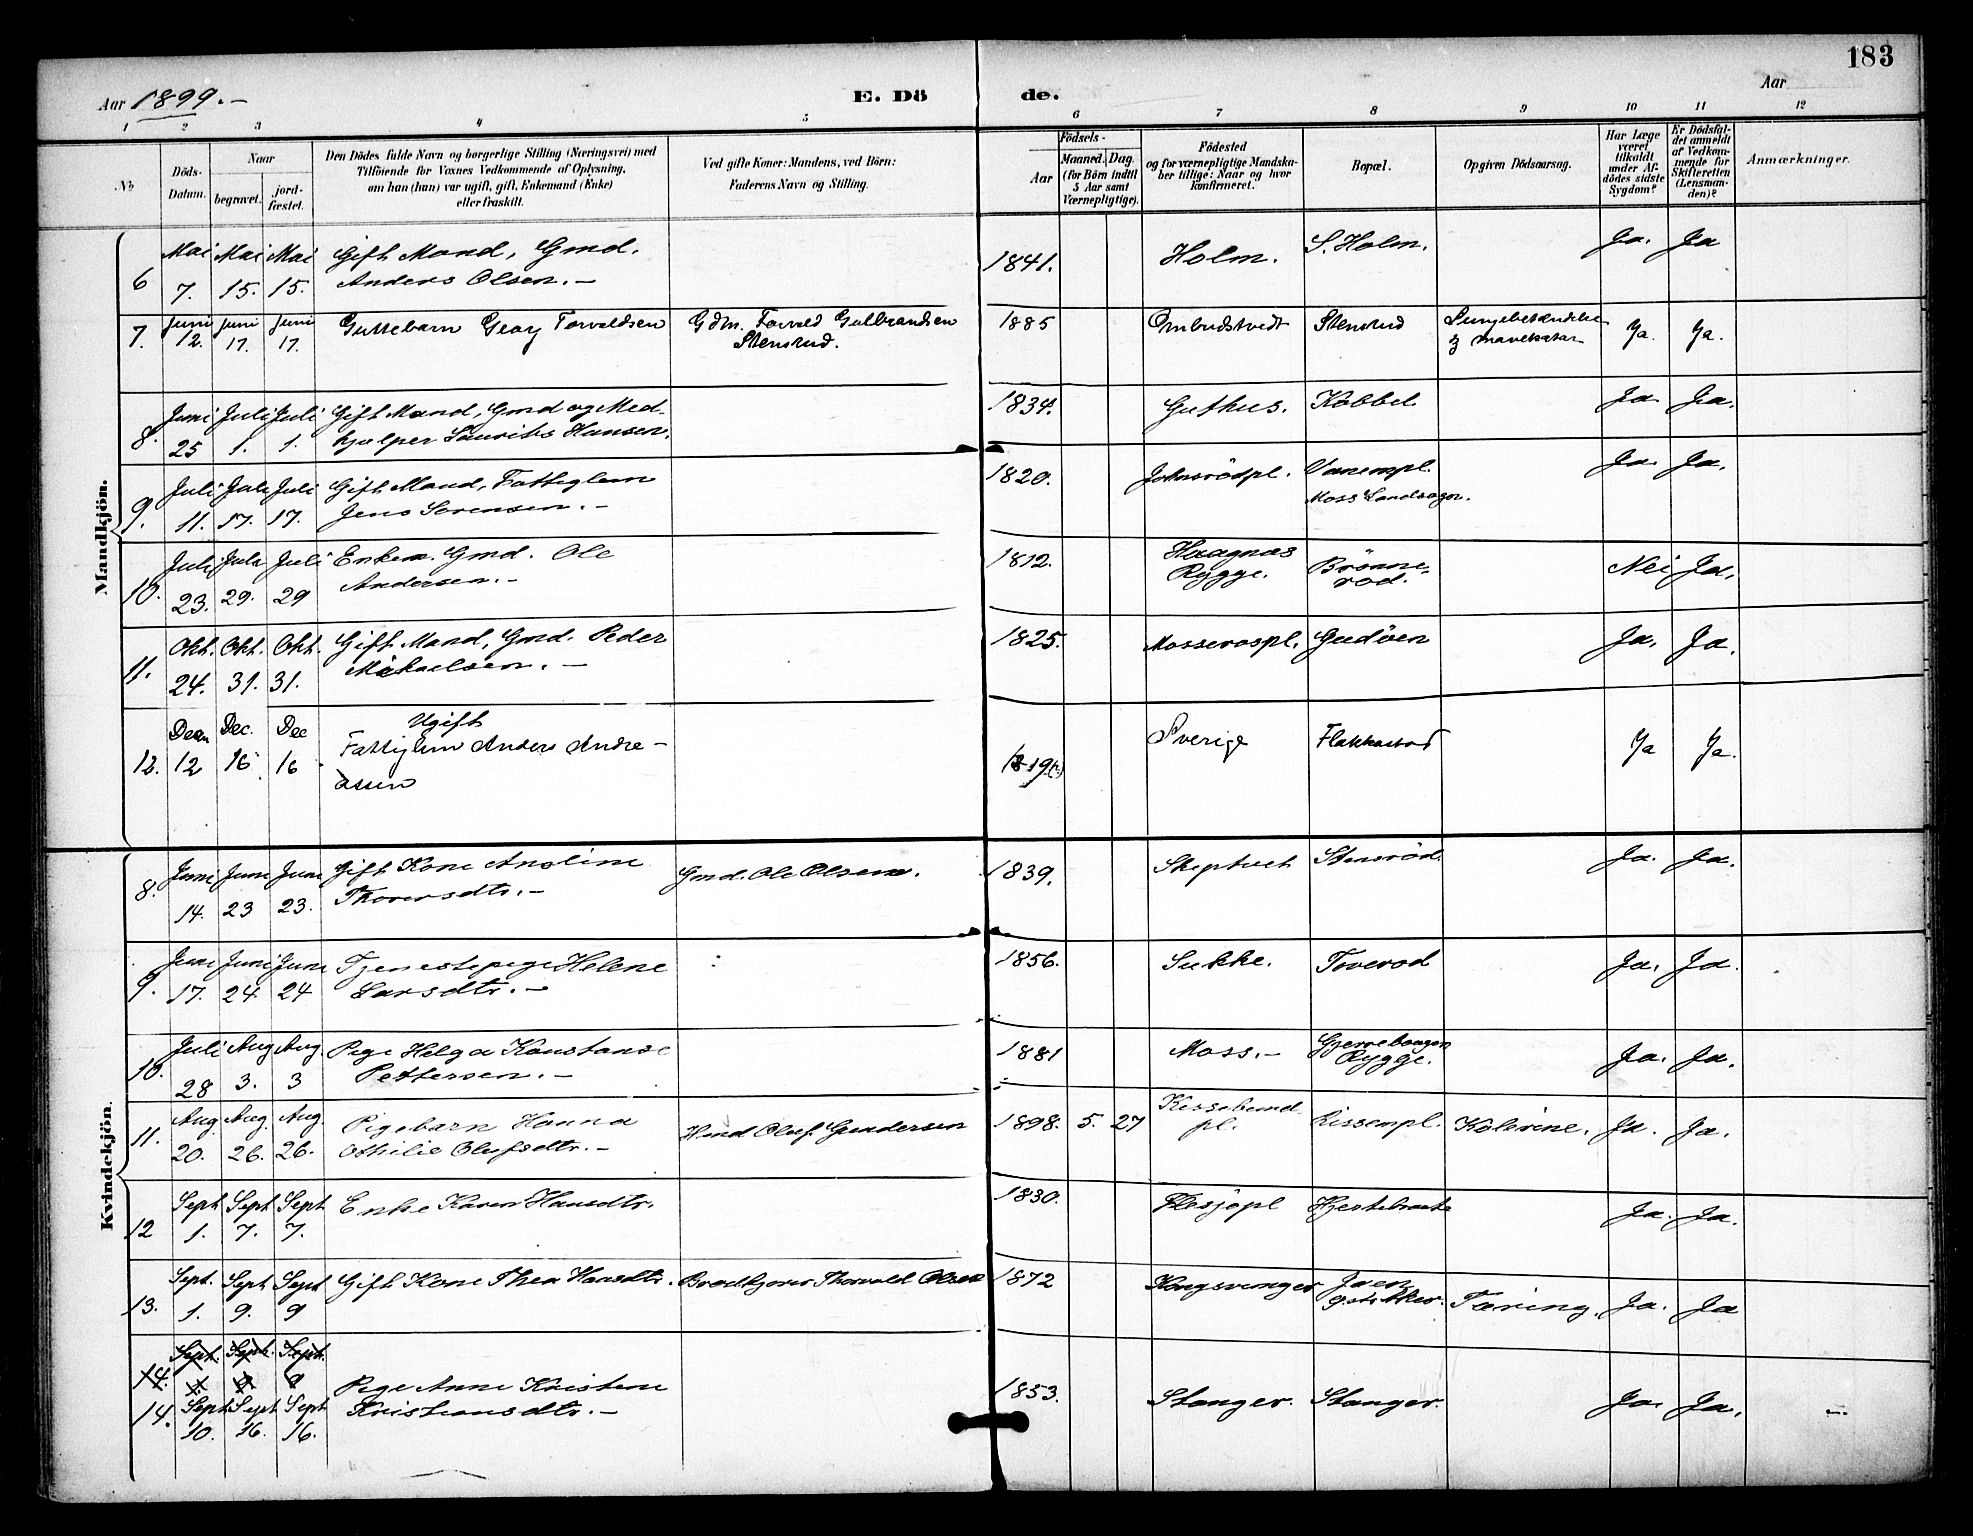 183
Aar 1899.-
E. Dö de.
Aar
1 2 3 4 5 6 7 8 9 10 11 12
No
Döds-Datum.
Naar
begravet.
jord-fæstet.
Den Dödes fulde Navn og borgerlige Stilling (Næringsvei) med
Tilföiende for Voxnes Vedkommende af Oplysning,
om han (hun) var ugift, gift, Enkemand (Enke)
eller fraskilt.
Ved gifte Koner: Mandens, ved Börn:
Faderens Navn og Stilling.
Födsels-
Aar
Maaned. Dag.
(for Börn indtil
5 Aar samt
Værnepligtige).
Födested
og for værnepligtige Mandska-
ber tillige: Naar og hvor
konfirmeret.
Bopæl.
Opgiven Dödsaarsag.
Har Læge
været
tilkaldt
under Af-
dödes sidste
Sygdom?
Er Dödsfal-
det anmeldt
af Vedkom-
mende for
Skifteretten
(Lensman-
den)?
Anmærkninger.
Mandkjön.
6 Mai 7. Mai 15. Mai 15. Gift Mand, Gmd.
Anders Olsen.- 1841. Holm. S. Holm. Ja. Ja
7. Juni 12. Juni 17. Juni 17. Guttebarn Georg Torvaldsen Gdm. Torvald Gulbrandsen
Stensrud. 1885 Ombudstvedt Stensrud Lungebetændelse
og mavekatar Ja. Ja.
8. Juni 25 Juli 1. Juli 1. Gift Mand, Gmd og Med-
hjælper Laurits Hansen. 1834. Guthus. Kabbel. Ja. Ja.
9. Juli 11. Juli 17. Juli 17. Gift Mand, Fattiglem
Jens Sörensen.- 1820. Johnsrödpl. Vanempl.
Moss Landsogn. Ja. Ja.
10. Juli 23. Juli 29. Juli 29 Enkem. Gmd. Ole
Andersen.- 1812. Haagnæs
Rygge. Brönne-
rod. Nei Ja.
11. Okt. 24. Okt. 31. Okt. 31. Gift Mand, Gmd. Peder
Mikaelsen.- 1825. Mosserospl. Gudöen Ja. Ja.
12. Decm 12 Dec. 16 Dec 16 Ugift
Fattiglem Anders Andre-
assen 1819(?) Sverige Flakkastad Ja Ja.
Kvindekjön.
8. Juni 14. Juni 23 Juni 23. Gift Kone Anoline
Thorersdtr.- Gmd. Ole Olsen. 1839. Skeptvet Stensröd. Ja. Ja.
9. Juni 17. Juni 24 Juni 24 Tjenestepige Helene
Larsdtr.- 1856. Sukke. Toverod Ja. Ja.
10. Juli 28 Aug 3. Aug. 3 Pige Helga Konstanse
Pettersen.- 1881 Moss.- Gjerrebaugen
Rygge. Ja. Ja.
11. Aug 20. Aug. 26. Aug. 26. Pigebarn Hanna
Othilie Olufsdtr.- Hmd Oluf Gundersen 1898. 5. 27 Kissebund
pl. Rissempl. Kolerine. Ja. Ja.
12 Sept 1. Sept 7. Sept 7. Enke Karen Hansdtr. 1830. Flesjöpl Hjertebraate Ja. Ja.
13. Sept. 1. Sept 9. Sept 9 Gift Kone Thea Hansdtr. Brödkjörer Thorvald Olsen 1872 Kongsvinger Tæring. Ja. Ja
14. Sept. Sept. Sept. 9
14. Sept 10. Sept 16. Sept 16. Pige Anne Kristine
Kristiansdtr.- 1853. Stanger. Stanger. Ja. Ja.